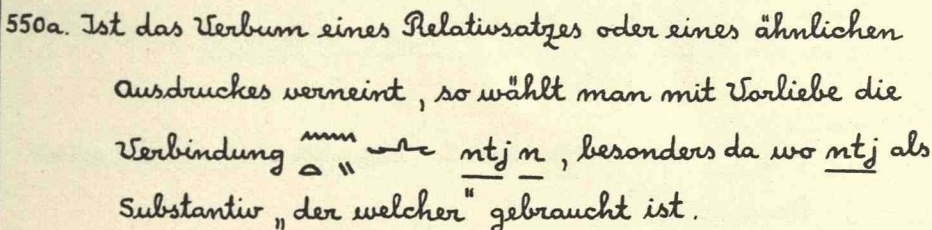 550a. Ist das Verbum eines Relativsatzes oder eines ähnlichen
Ausdruckes verneint, so wählt man mit Vorliebe die
Verbindung 𓈖𓏏𓏭 𓂜 ntj n, besonders da wo ntj als
Substantiv „der welcher“ gebraucht ist.